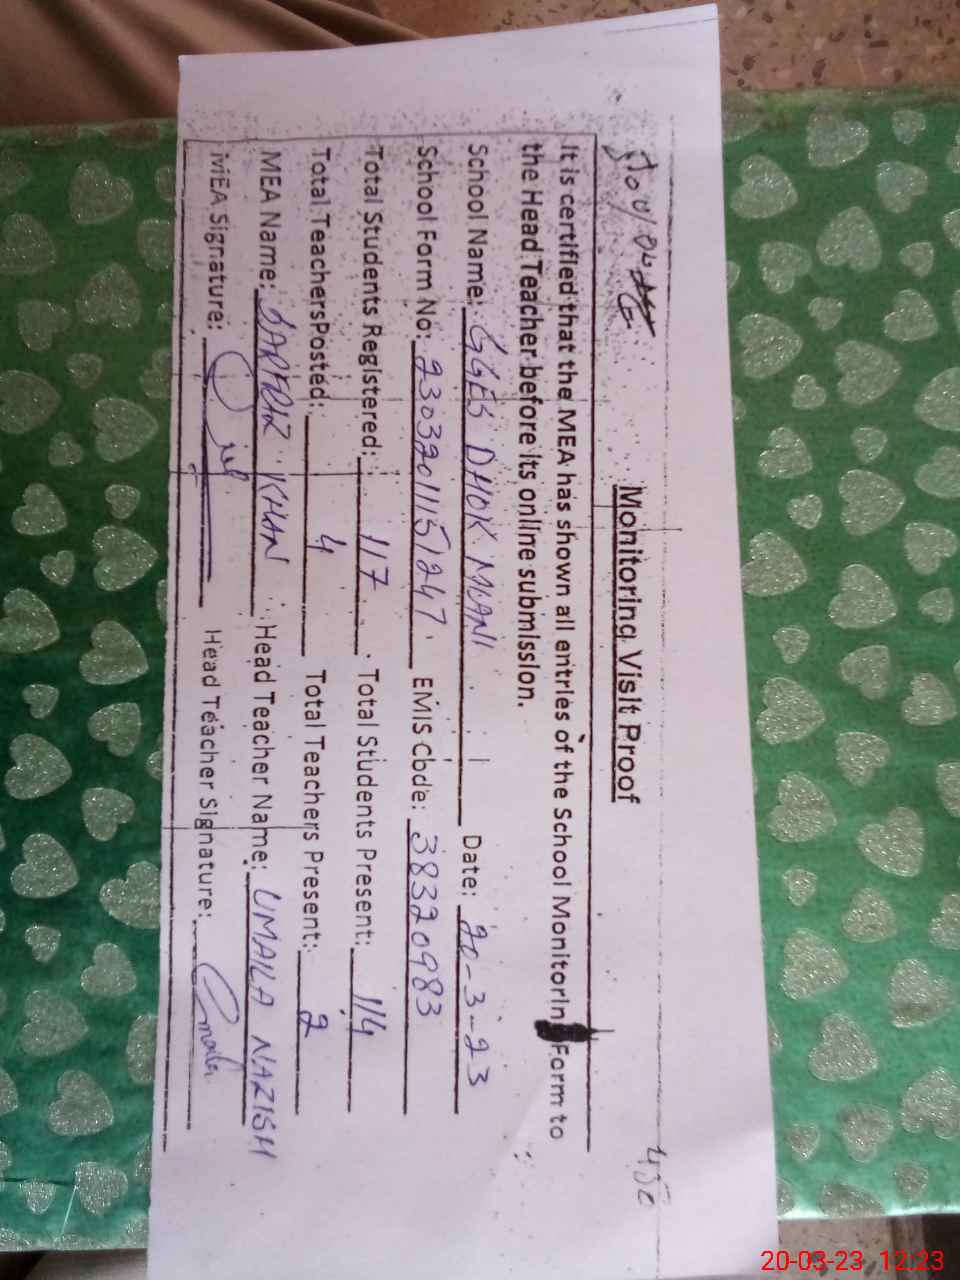 Monitoring Visit Proof
It is certified that the MEA has shown all entries of the School Monitorin Form to
the Head Teacher before its online submission.
School Name: GGES DHOK MIANI Date: 20-3-23
School Form No: 2303201151247 EMIS Code: 38320983
Total Students Registered: 117 Total Students Present: 114
Total TeachersPosted: 4 Total Teachers Present: 2
MEA Name: SARFRAZ KHAN Head Teacher Name: UMAILA NAZISH
MEA Signature: Head Teacher Signature: Umaila
20-03-23 12:23